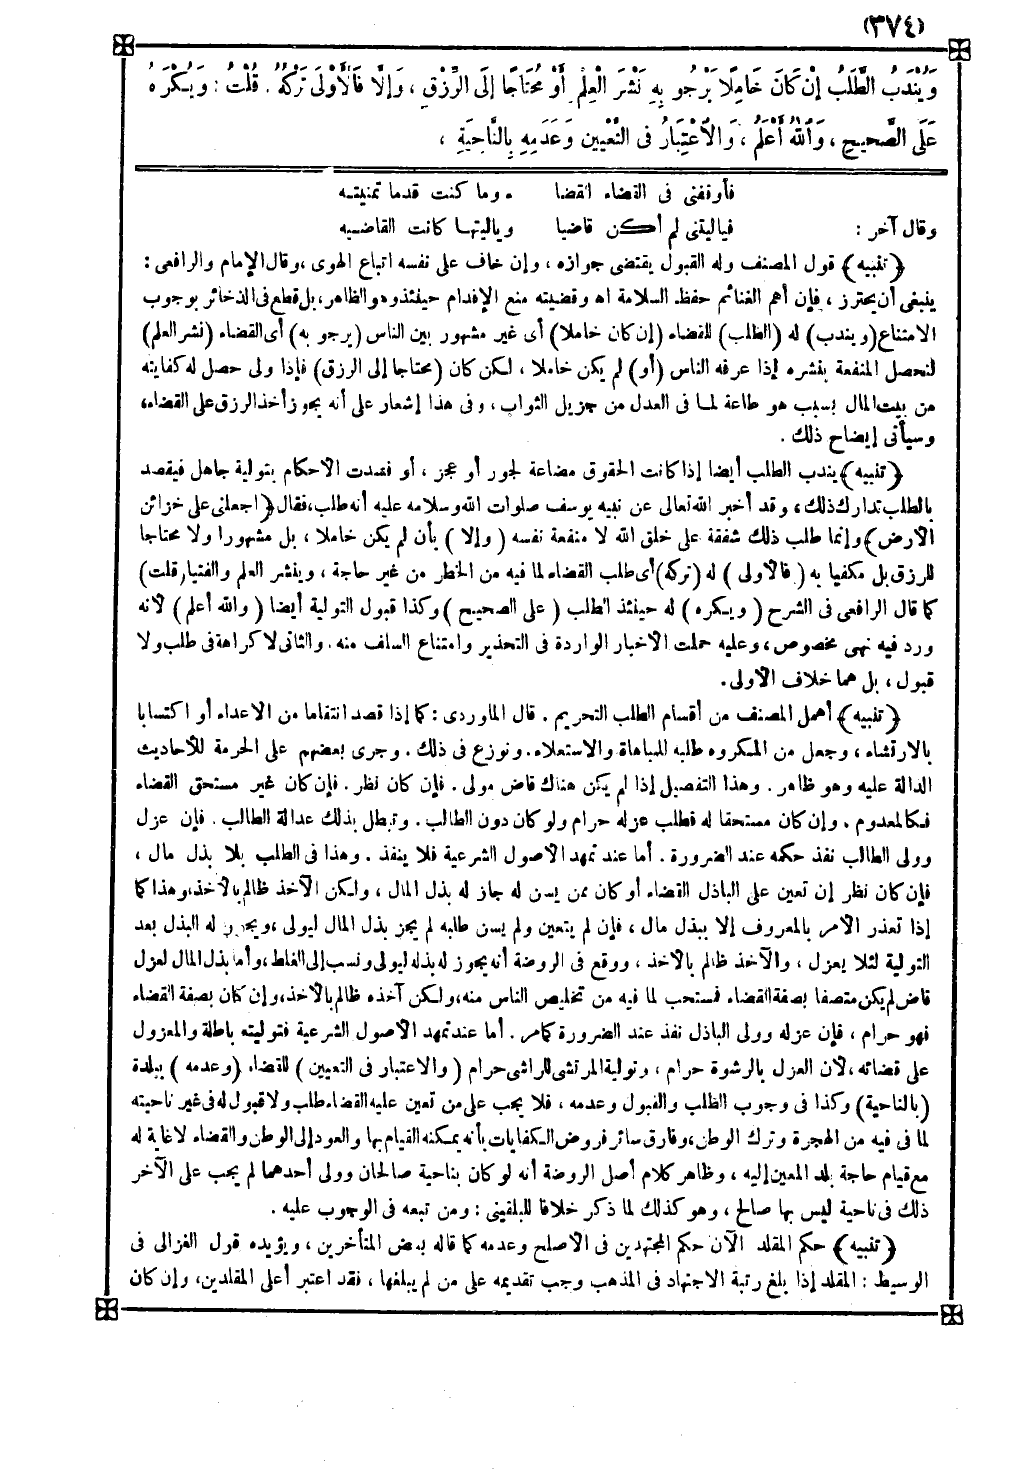 (٣٧٤)
وَيُنْدَبُ الطَّلَبُ إِنْ كَانَ خَامِلًا يَرْجُو بِهِ نَشْرَ الْعِلْمِ أَوْ مُحْتَاجًا إِلَى الرِّزْقِ ، وَإِلَّا فَالْأَوْلَى تَرْكُهُ . قُلْتُ : وَيُكْرَهُ
عَلَى الصَّحِيحِ ، وَاللهُ أَعْلَمُ ، وَالْاعْتِبَارُ فِى التَّعْيِينِ وَعَدَمِهِ بِالنَّاحِيَةِ ،
فأوقفنى فى القضاء القضا ٠ وما كنت قدما تمنيته
وقال آخر : فياليتنى لم أكن قاضيا وياليتها كانت القاضيه
﴿ تنبيه ﴾ قول المصنف وله القبول يقتضى جوازه ، وإن خاف على نفسه اتباع الهوى ، وقال الإمام والرافعى :
ينبغى أن يحترز ، فإن أهم الغنائم حفظ السلامة اه وقضيته منع الإقدام حينئذ وهو الظاهر ، بل قطع فى الذخائر بوجوب
الامتناع (ويندب) له (الطلب) للقضاء (إن كان خاملا) أى غير مشهور بين الناس (يرجو به) أى القضاء (نشر العلم)
لتحصل المنفعة بنشره إذا عرفه الناس (أو) لم يكن خاملا ، لكن كان (محتاجا إلى الرزق) فإذا ولى حصل له كفايته
من بيت المال بسبب هو طاعة لما فى العدل من جزيل الثواب ، وفى هذا إشعار على أنه يجوز أخذ الرزق على القضاء،
وسيأتى إيضاح ذلك .
﴿ تنبيه ﴾ يندب الطلب أيضا إذا كانت الحقوق مضاعة لجور أو عجز ، أو فسدت الأحكام بتولية جاهل فيقصد
بالطلب تدارك ذلك ، وقد أخبر الله تعالى عن نبيه يوسف صلوات الله وسلامه عليه أنه طلب، فقال ﴿ اجعلنى على خزائن
الأرض ﴾ وإنما طلب ذلك شفقة على خلق الله لا منفعة نفسه ( وإلا ) بأن لم يكن خاملا ، بل مشهورا ولا محتاجا
للرزق بل مكفيا به ( فالأولى ) له ( تركه ) أى طلب القضاء لما فيه من الخطر من غير حاجة ، وينشر العلم والفتيا ( قلت )
كما قال الرافعى فى الشرح ( ويكره ) له حينئذ الطلب ( على الصحيح ) وكذا قبول التولية أيضا ( والله أعلم ) لأنه
ورد فيه نهى مخصوص ، وعليه حملت الأخبار الواردة فى التحذير وامتناع السلف منه . والثانى لا كراهة فى طلب ولا
قبول ، بل هما خلاف الأولى .
﴿ تنبيه ﴾ أهمل المصنف من أقسام الطلب التحريم . قال الماوردى : كما إذا قصد انتقاما من الأعداء أو اكتسابا
بالارتشاء ، وجعل من المكروه طلبه للمباهاة والاستعلاء . ونوزع فى ذلك . وجرى بعضهم على الحرمة للأحاديث
الدالة عليه وهو ظاهر . وهذا التفصيل إذا لم يكن هناك قاض مولى . فإن كان نظر . فإن كان غير مستحق القضاء
فكالمعدوم . وإن كان مستحقا له فطلب عزله حرام ولو كان دون الطالب . وتبطل بذلك عدالة الطالب . فإن عزل
وولى الطالب نفذ حكمه عند الضرورة . أما عند تمهد الأصول الشرعية فلا ينفذ . وهذا فى الطلب بلا بذل مال ،
فإن كان نظر إن تعين على الباذل القضاء أو كان ممن يسن له جاز له بذل المال ، ولكن الآخذ ظالم بالأخذ، وهذا كما
إذا تعذر الأمر بالمعروف إلا ببذل مال ، فإن لم يتعين ولم يسن طلبه لم يجز بذل المال ليولى ، ويجوز له البذل بعد
التولية لئلا يعزل ، والآخذ ظالم بالأخذ ، ووقع فى الروضة أنه يجوز له بذله ليولى ونسب إلى الغلط ، وأما بذل المال لعزل
قاض لم يكن متصفا بصفة القضاء فمستحب لما فيه من تخليص الناس منه ، ولكن آخذه ظالم بالأخذ، وإن كان بصفة القضاء
فهو حرام ، فإن عزله وولى الباذل نفذ عند الضرورة كما مر . أما عند تمهد الأصول الشرعية فتوليته باطلة والمعزول
على قضائه ، لأن العزل بالرشوة حرام ، وتولية المرتشى للراشى حرام ( والاعتبار فى التعيين ) للقضاء ( وعدمه ) ببلدة
(بالناحية) وكذا فى وجوب الطلب والقبول وعدمه ، فلا يجب على من تعين عليه القضاء طلب ولا قبول له فى غير ناحيته
لما فى فيه من الهجرة وترك الوطن، وفارق سائر فروض الكفايات بأنه يمكنه القيام بها والعود إلى الوطن والقضاء لا غاية له
مع قيام حاجة بلد المعين إليه ، وظاهر كلام أصل الروضة أنه لو كان بناحية صالحان وولى أحدهما لم يجب على الآخر
ذلك فى ناحية ليس بها صالح ، وهو كذلك لما ذكر خلافا للبلقينى : ومن تبعه فى الوجوب عليه .
﴿ تنبيه ﴾ حكم المقلد الآن حكم المجتهدين فى الأصلح وعدمه كما قاله بعض المتأخرين ، ويؤيده قول الغزالى فى
الوسيط : المقلد إذا بلغ رتبة الاجتهاد فى المذهب وجب تقديمه على من لم يبلغها ، فقد اعتبر أعلى المقلدين، وإن كان